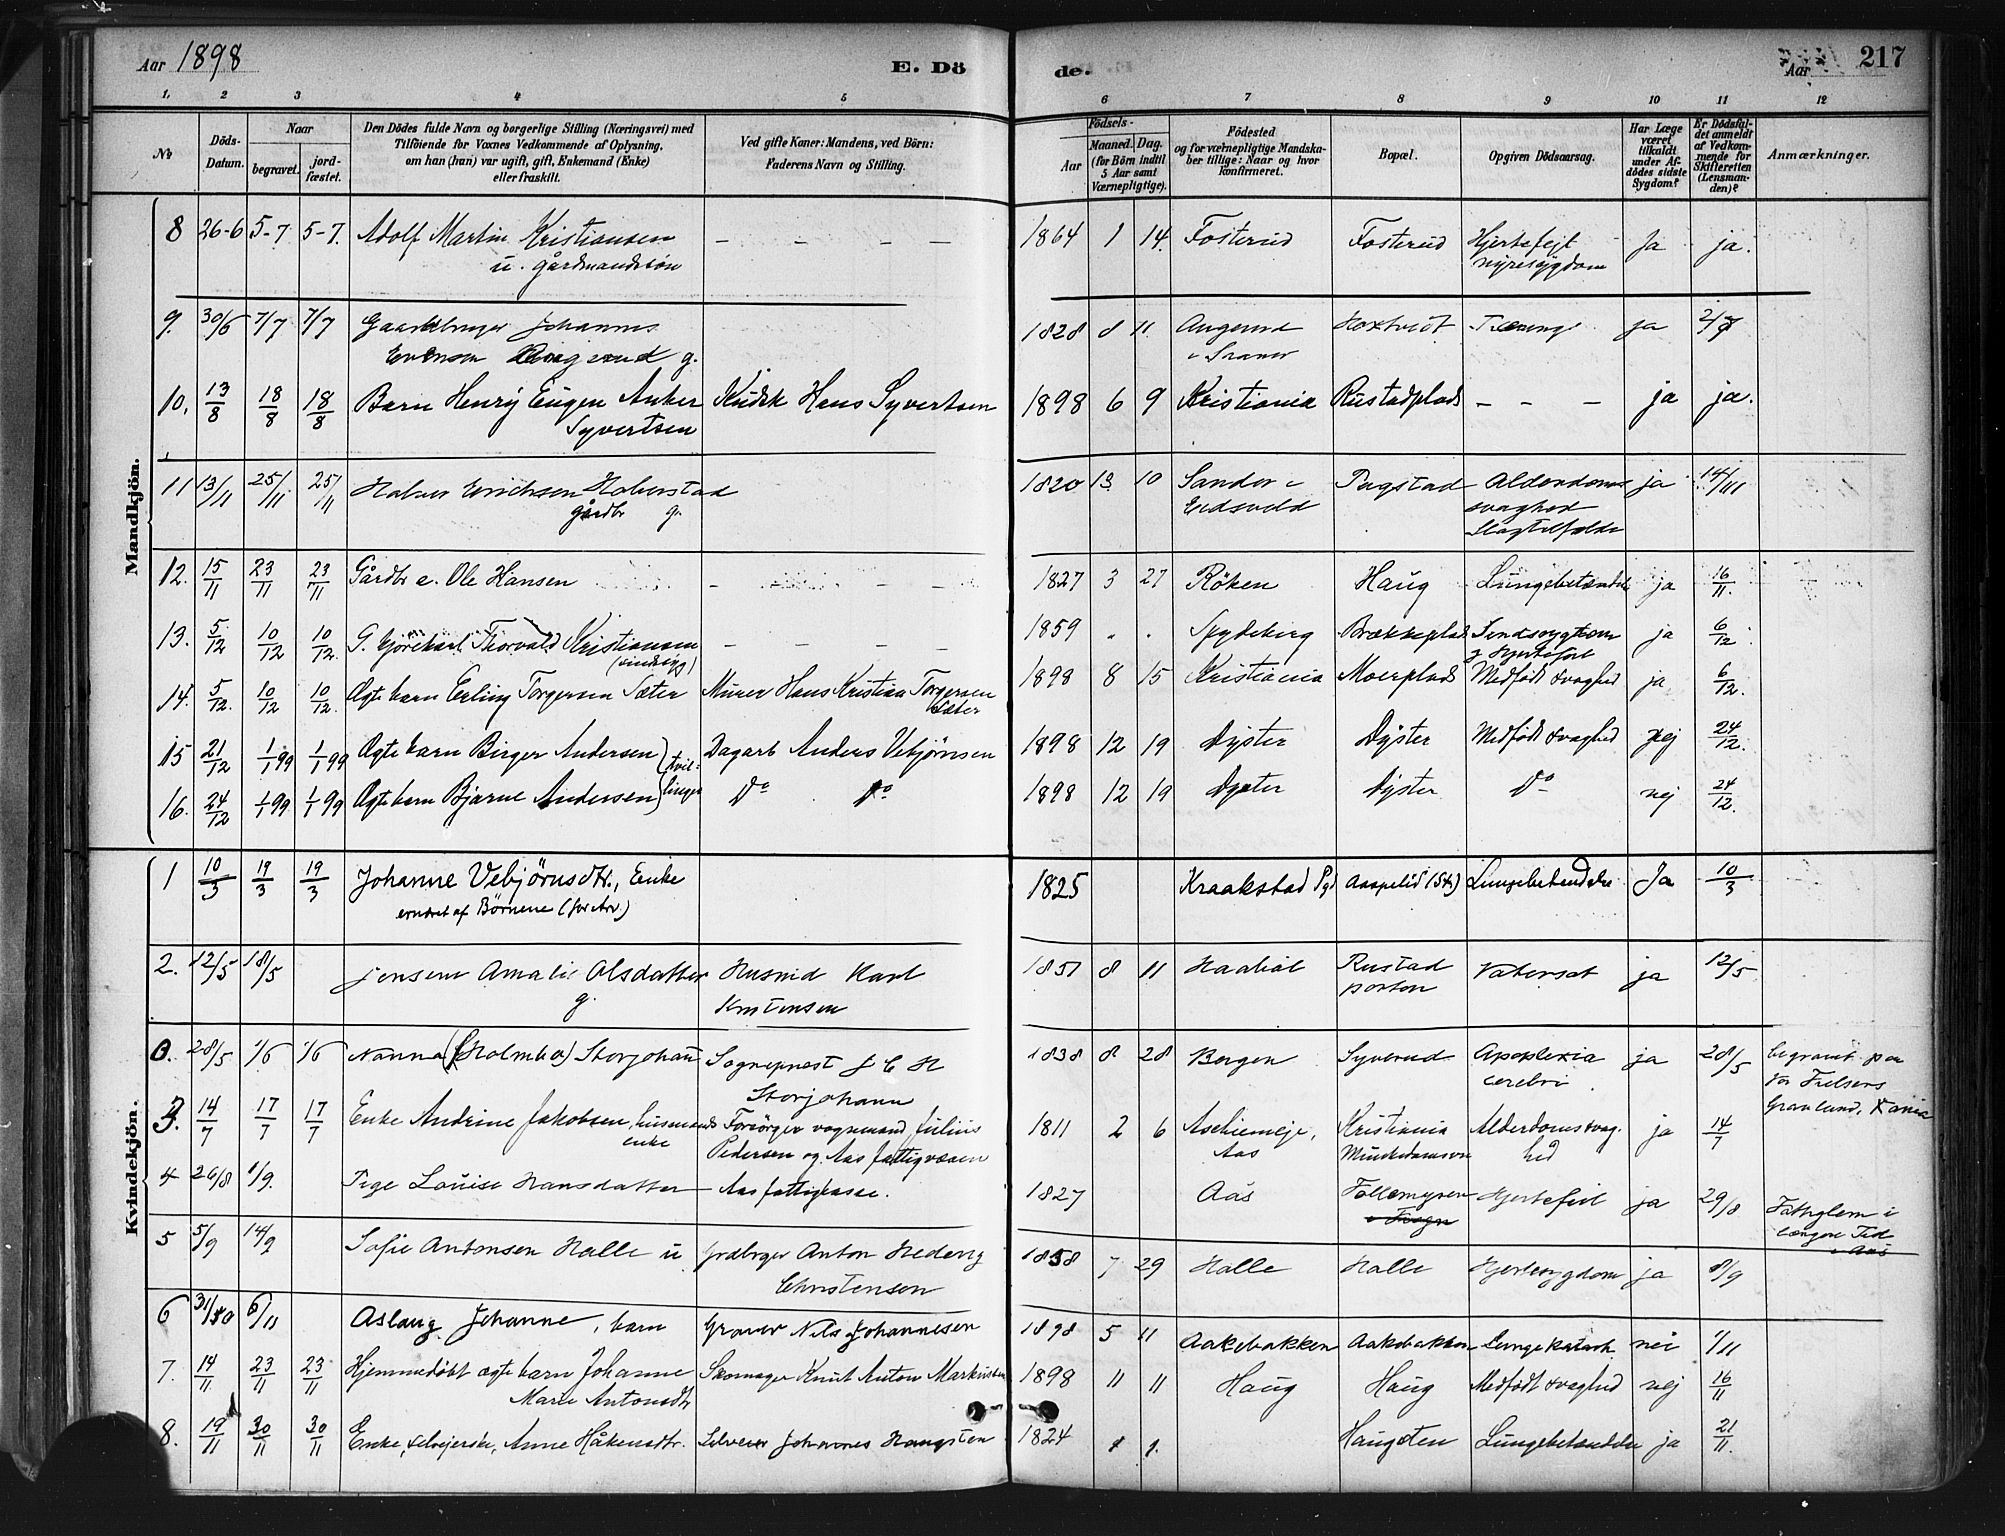 Aar 1898
E. Dö
de.
Aar
217
1. 2 3 4 5 6 7 8 9 10 11 12
No
Döds-Datum.
Naar
begravet.
jord-fæstet.
Den Dödes fulde Navn og borgerlige Stilling (Næringsvei) med
Tilföiende for Voxnes Vedkommende af Oplysning,
om han (hun) var ugift, gift, Enkemand (Enke)
eller fraskilt.
Ved gifte Koner: Mandens, ved Börn:
Faderens Navn og Stilling.
Födsels-
Aar
Maaned. Dag.
(for Börn indtil
5 Aar samt
Værnepligtige).
Födested
og for værnepligtige Mandska-
ber tillige: Naar og hvor
konfirmeret.
Bopæl.
Opgiven Dödsaarsag.
Har Læge
været
tilkaldt
under Af-
dödes sidste
Sygdom?
Er Dödsfal-
det anmeldt
af Vedkom-
mende for
Skifteretten
(Lensman-
den)?
Anmærkninger.
Mandkjön.
8 26-6 5-7 5-7. Adolf Martin Kristiansen — — — — 1864 1 14. Fosterud Fosterud Hjertefejl Ja ja.
u. gårdmandssön nyresygdom
9. 30/6 7/7 7/7 Gaardbruger Johannes 1828 8 11 Hoxtvedt Tæring ja
Evensen g.
10. 13/8 18/8 18/8 Barn Henry Eugen Anker Kudsk Hans Syvertsen 1898 6 9 Kristiania Rustadplads — — — ja ja.
Syvertsen
11 13/11 25/11 25/11 Halvor Erichsen Haberstad 1820 13 10 Sander i Pagstad Alderdoms ja 14/11
gårdbr g. Eidsvold svaghed
Slagtilfælde
12. 15/11 23/11 23/11 Gårdbr e. Ole Hansen — — — — 1827 3 27 Röken Haug Lungebetændel ja 16/11.
13. 5/12 10/12 10/12. G. Thorvald Kristiansen — — — — 1859 " " Spydeberg Brækkeplad Sindssygdom ja 6/12.
(sindssyg) g Hjertefejl
14. 5/12. 10/12 10/12. Ægte barn Erling Torgersen Sæter Murer Hans Kristian Torgersen 1898 8 15 Kristiania Moerplads Medfødt svaghed ja 6/12.
Sæter
15 21/12 1/1 99 1/1 99 Ægte barn Birger Andersen (tvil- Dagarb Anders Vebjönsen 1898 12 19 Dyster Dyster Medfødt svaghed nej 24/12.
16. 24/12 1/1 99 1/1 99 Ægte barn Bjarne Andersen) linger Do Do 1898 12 19 Dyster Dyster Do nej 24/12.
Kvindekjön.
1 10/3 19/3 19/3 Johanne Vebjörnsdtr., Enke 1825 Kraakstad Pgd Aaspelid (54) Lungebetendelse Ja 10/3
ernæret af Börnene (for Arv)
2. 12/5 18/5 Jensine Amalie Olsdatter Husmd Karl 1851 8 11 Haabøl Rustad Vatersot ja 12/5
g. Kristensen porten
3. 28/5 1/6 1/6 Nanna (Holmboe) Storjohann Sogneprest J C H 1838 8 28 Bergen Syverud Apoplexia ja 28/5 begravet paa
Storjohann cerebri Vor Frelsers
Gravlund, Kania
3. 14/7 17/7 17/7 Enke Andrine Jakobsen, husmands Forsörger vognmand Julius 1811 2 6 Aschiemeje, Kristiania Alderdomssvag- ja 14/7
enke Pedersen og Aas fattigvæsen Aas Munkedamsvn hed
4 26/8 1/9. Pige Louise Hansdatter Aas fattigkasse. 1827 Aas Follemyren Hjertefeil ja 29/8 Fattiglem i
længere Tid
i Aas
5 5/9 14/9 Sofie Antonsen Halle u Grdbrger Anton Hedevig 1858 7 29 Halle Halle Hjertesygdom ja 8/9
Christensen
6 31/10 6/11 Aslaug Johanne, barn Graver Nils Johannesen 1898 5 11 Aakebakken Aakebakken Lungekatarh nei 1/11
7. 14/11 23/11 23/11 Hjemmedøbt ægte barn Johanne Skomager Knut Anton Markussen 1898 11 11 Haug Haug Medfødt svaghed nej 16/11
Marie Antonsdtr
8. 19/11 30/11 30/11 Enke, selvejerske, Anne Håkensdtr. Selveier Johannes Haugsten 1824 1 1. Haugsten Lungebetændelse ja 21/11.